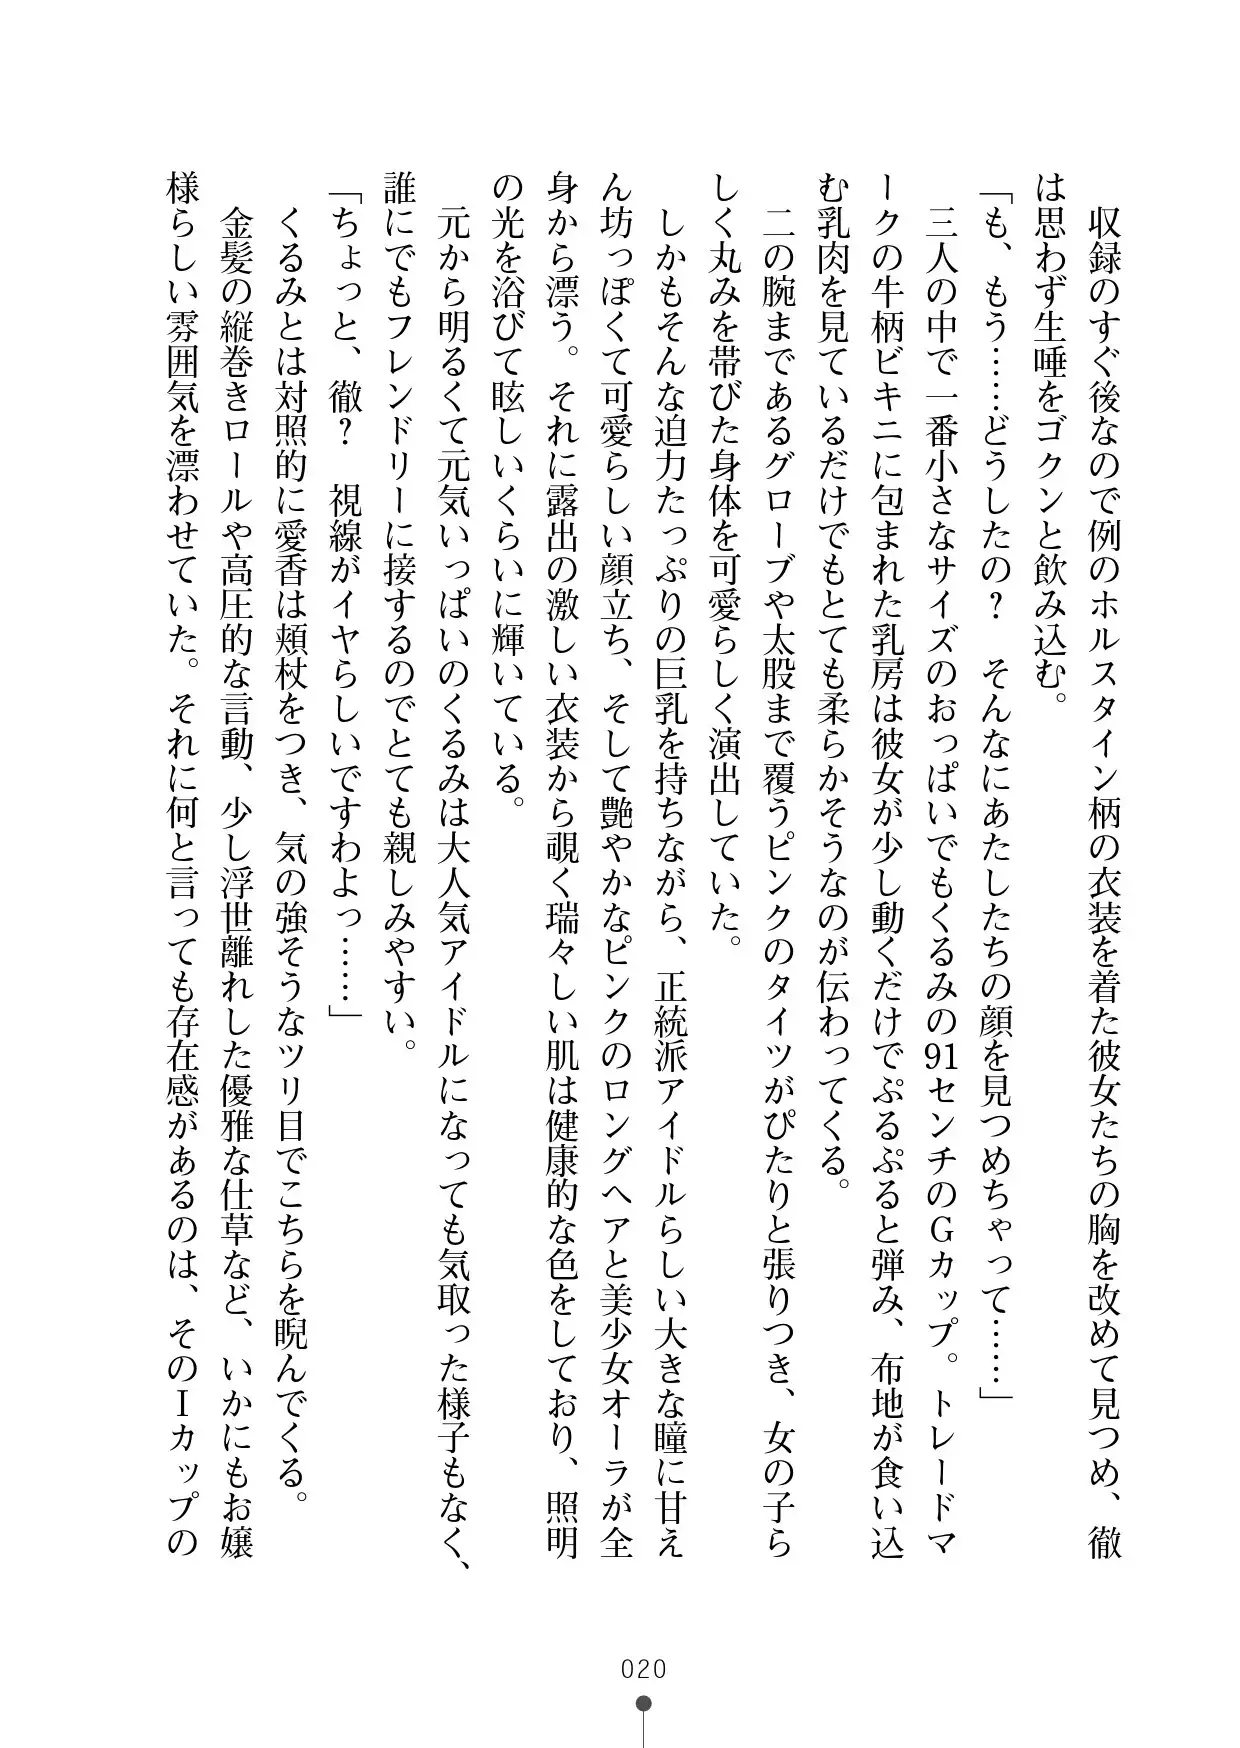 収録のすぐ後なので例のホルスタイン柄の衣装を着た彼女たちの胸を改めて見つめ、徹
は思わず生唾をゴクンと飲み込む。
「も、もう……どうしたの？　そんなにあたしたちの顔を見つめちゃって……」
三人の中で一番小さなサイズのおっぱいでもくるみの91センチのGカップ。トレードマ
ークの牛柄ビキニに包まれた乳房は彼女が少し動くだけでぷるぷると弾み、布地が食い込
む乳肉を見ているだけでもとても柔らかそうなのが伝わってくる。
二の腕まであるグローブや太股まで覆うピンクのタイツがぴたりと張りつき、女の子ら
しく丸みを帯びた身体を可愛らしく演出していた。
しかもそんな迫力たっぷりの巨乳を持ちながら、正統派アイドルらしい大きな瞳に甘え
ん坊っぽくて可愛らしい顔立ち、そして艶やかなピンクのロングヘアと美少女オーラが全
身から漂う。それに露出の激しい衣装から覗く瑞々しい肌は健康的な色をしており、照明
の光を浴びて眩しいくらいに輝いている。
元から明るくて元気いっぱいのくるみは大人気アイドルになっても気取った様子もなく、
誰にでもフレンドリーに接するのでとても親しみやすい。
「ちょっと、徹？　視線がイヤらしいですわよっ……」
くるみとは対照的に愛香は頬杖をつき、気の強そうなツリ目でこちらを睨んでくる。
金髪の縦巻きロールや高圧的な言動、少し浮世離れした優雅な仕草など、いかにもお嬢
様らしい雰囲気を漂わせていた。それに何と言っても存在感があるのは、そのIカップの
020